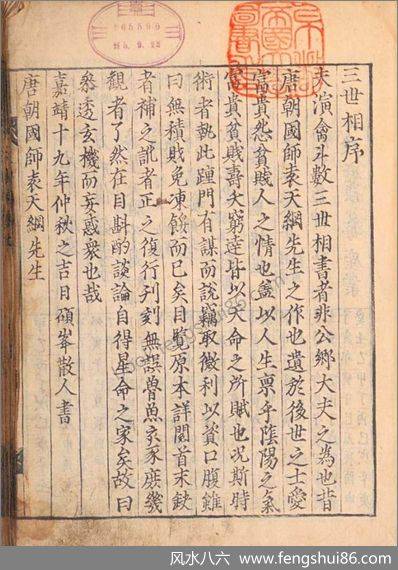 三世相序
夫演禽斗數三世相書者非公鄉大夫之為也昔
唐朝國師袁天綱先生之作也遺於後世之士愛
富貴怨貧賤人之情也蓋以人生稟乎陰陽之氣
富貴貧賤壽夭窮達皆以天命之所賦也况斯時
術者執此踵門有謀而說竊取微利以資口腹雖
曰無積免凍餒而已矣目覧原本詳閱首末缺
者補之訛者正之復行刊刻無誤魯魚亥豕庶幾
觀者了然在目斟酌談論自得星命之家矣故曰
叅透玄機而妄惑衆也哉
嘉靖十九年仲秋之吉日碩峯散人書
唐朝國師袁天綱先生
风水八六：www.fengshui86.com